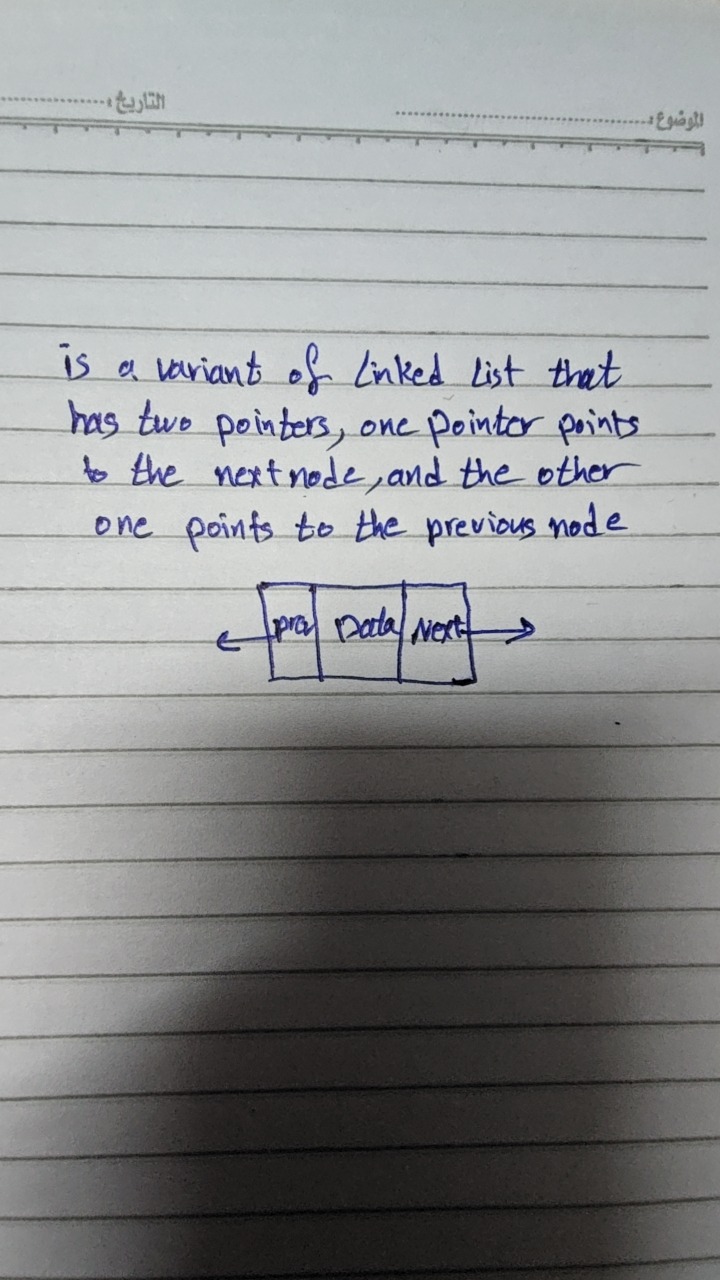 الموضوع: التاريخ:
is a variant of Linked List that
has two pointers, one pointer points
to the next node, and the other
one points to the previous node
pre Data Next